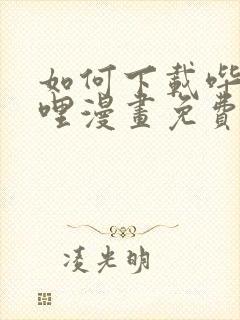 如何下載哔
哩漫畫免費
凌光明